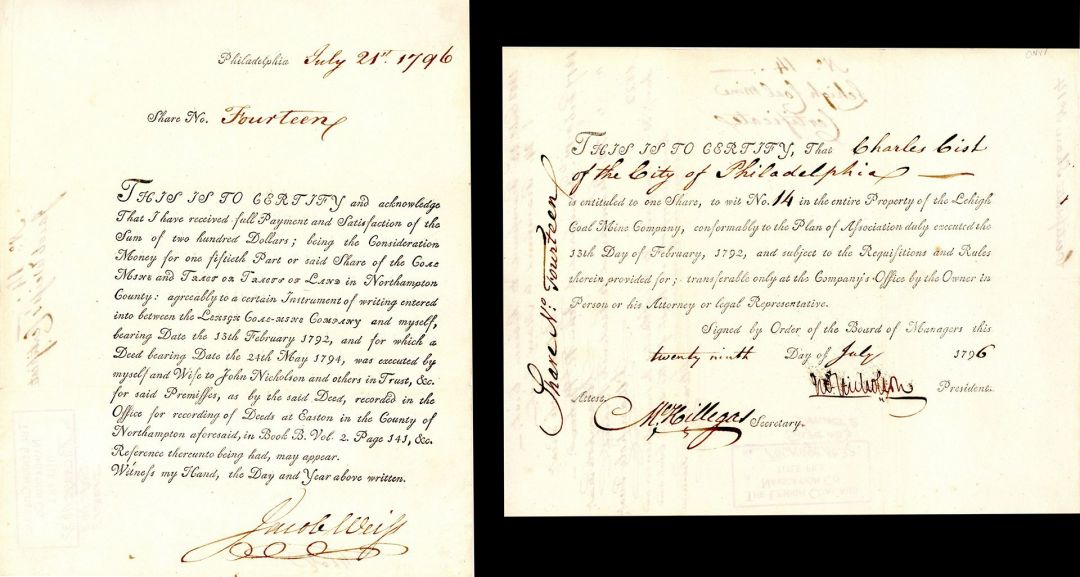 Philadelphia July 21st 1796
Share No. Fourteen
THIS IS TO CERTIFY and acknowledge
That I have received full Payment and Satisfaction of the
Sum of two hundred Dollars; being the Consideration
Money for one fiftieth Part or said Share of the COAL
MINE and TRACT OR TRACTS OF LAND in Northampton
County: agreeably to a certain Instrument of writing entered
into between the LEHIGH COAL-MINE COMPANY and myself,
bearing Date the 13th February 1792, and for which a
Deed bearing Date the 24th May 1794, was executed by
myself and Wife to John Nicholson and others in Trust, &c.
for said Premiſſes, as by the said Deed, recorded in the
Office for recording of Deeds at Easton in the County of
Northampton aforesaid, in Book B. Vol. 2. Page 141, &c.
Reference thereunto being had, may appear.
Witneſs my Hand, the Day and Year above written.
Jacob Weiſs
Share No: Fourteen
THIS IS TO CERTIFY, That Charles Cist
of the City of Philadelphia
is entituled to one Share, to wit No. 14 in the entire Property of the Lehigh
Coal Mine Company, conformably to the Plan of Aſsociation duly executed the
13th Day of February, 1792, and subject to the Requiſitions and Rules
therein provided for; transferable only at the Company's Office by the Owner in
Person or his Attorney or legal Representative.
Signed by Order of the Board of Managers this
twenty ninth Day of July 1796
Jno. Nicholson President.
Attest.
Ml. Hillegas Secretary.